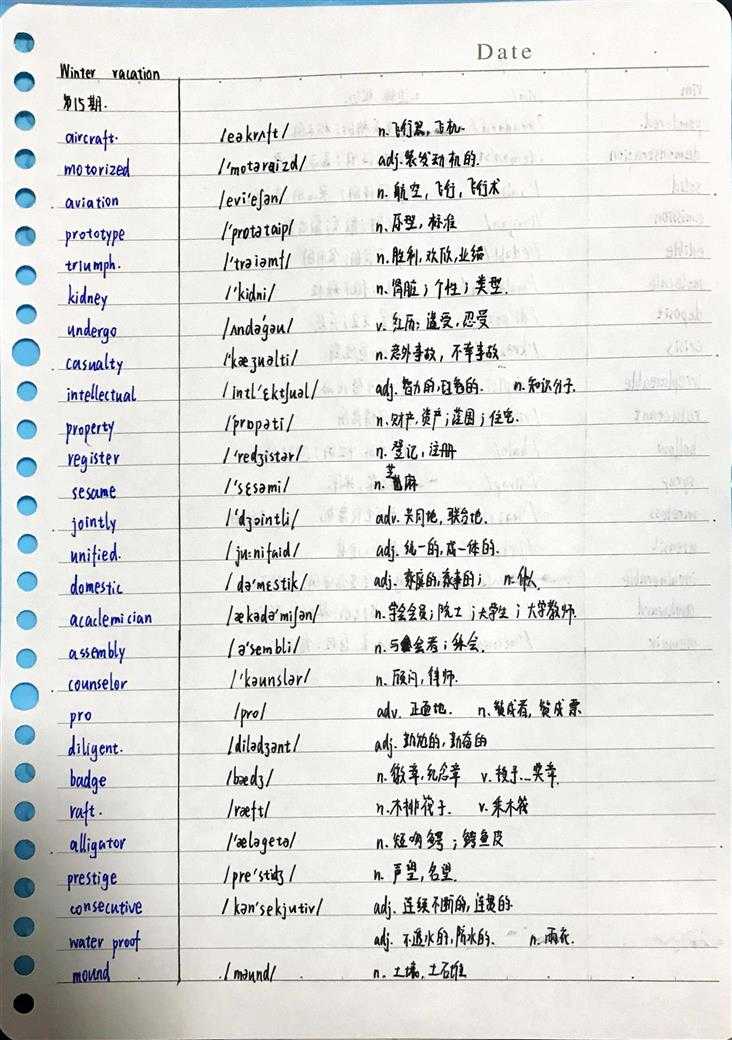 Date
Winter vacation
第15期.
aircraft. /eəkrʌft/ n. 飞行器, 飞机.
motorized /'motəraizd/ adj. 装发动机的.
aviation /evi'eʃən/ n. 航空, 飞行, 飞行术
prototype /'protətaip/ n. 原型, 标准
triumph. /'traiəmf/ n. 胜利, 欢欣, 业绩
kidney /'kidni/ n. 肾脏; 个性; 类型.
undergo /ʌndə'gəu/ v. 经历; 遭受, 忍受
casualty /'kæʒuəlti/ n. 意外事故, 不幸事故.
intellectual /intl'ɛktʃuəl/ adj. 智力的, 理智的. n. 知识分子.
property /'prɒpəti/ n. 财产, 资产; 庄园; 住宅.
register /'redʒistər/ n. 登记, 注册
sesame /'sɛsəmi/ n. 芝麻
jointly /'dʒɔintli/ adv. 共同地, 联合地.
unified. /ju:nifaid/ adj. 统一的, 成一体的.
domestic /də'mɛstik/ adj. 家庭的, 家事的; n. 仆人
academician /ækədə'miʃən/ n. 学会会员; 院士; 大学生; 大学教师.
assembly /ə'sembli/ n. 与会者; 集会.
counselor /'kaunslər/ n. 顾问, 律师.
pro /pro/ adv. 正面地. n. 赞成者, 赞成票
diligent. /dilədʒənt/ adj. 勤勉的, 勤奋的
badge /bædʒ/ n. 徽章, 纪念章 v. 授予...奖章.
raft. /ræft/ n. 木排筏子. v. 乘木筏
alligator /'æləgetə/ n. 短吻鳄; 鳄鱼皮
prestige /pre'stiʒ/ n. 声望, 名望.
consecutive /kən'sekjutiv/ adj. 连续不断的, 连贯的.
water proof adj. 不透水的, 防水的. n. 雨衣.
mound /maund/ n. 土墩, 土石堆